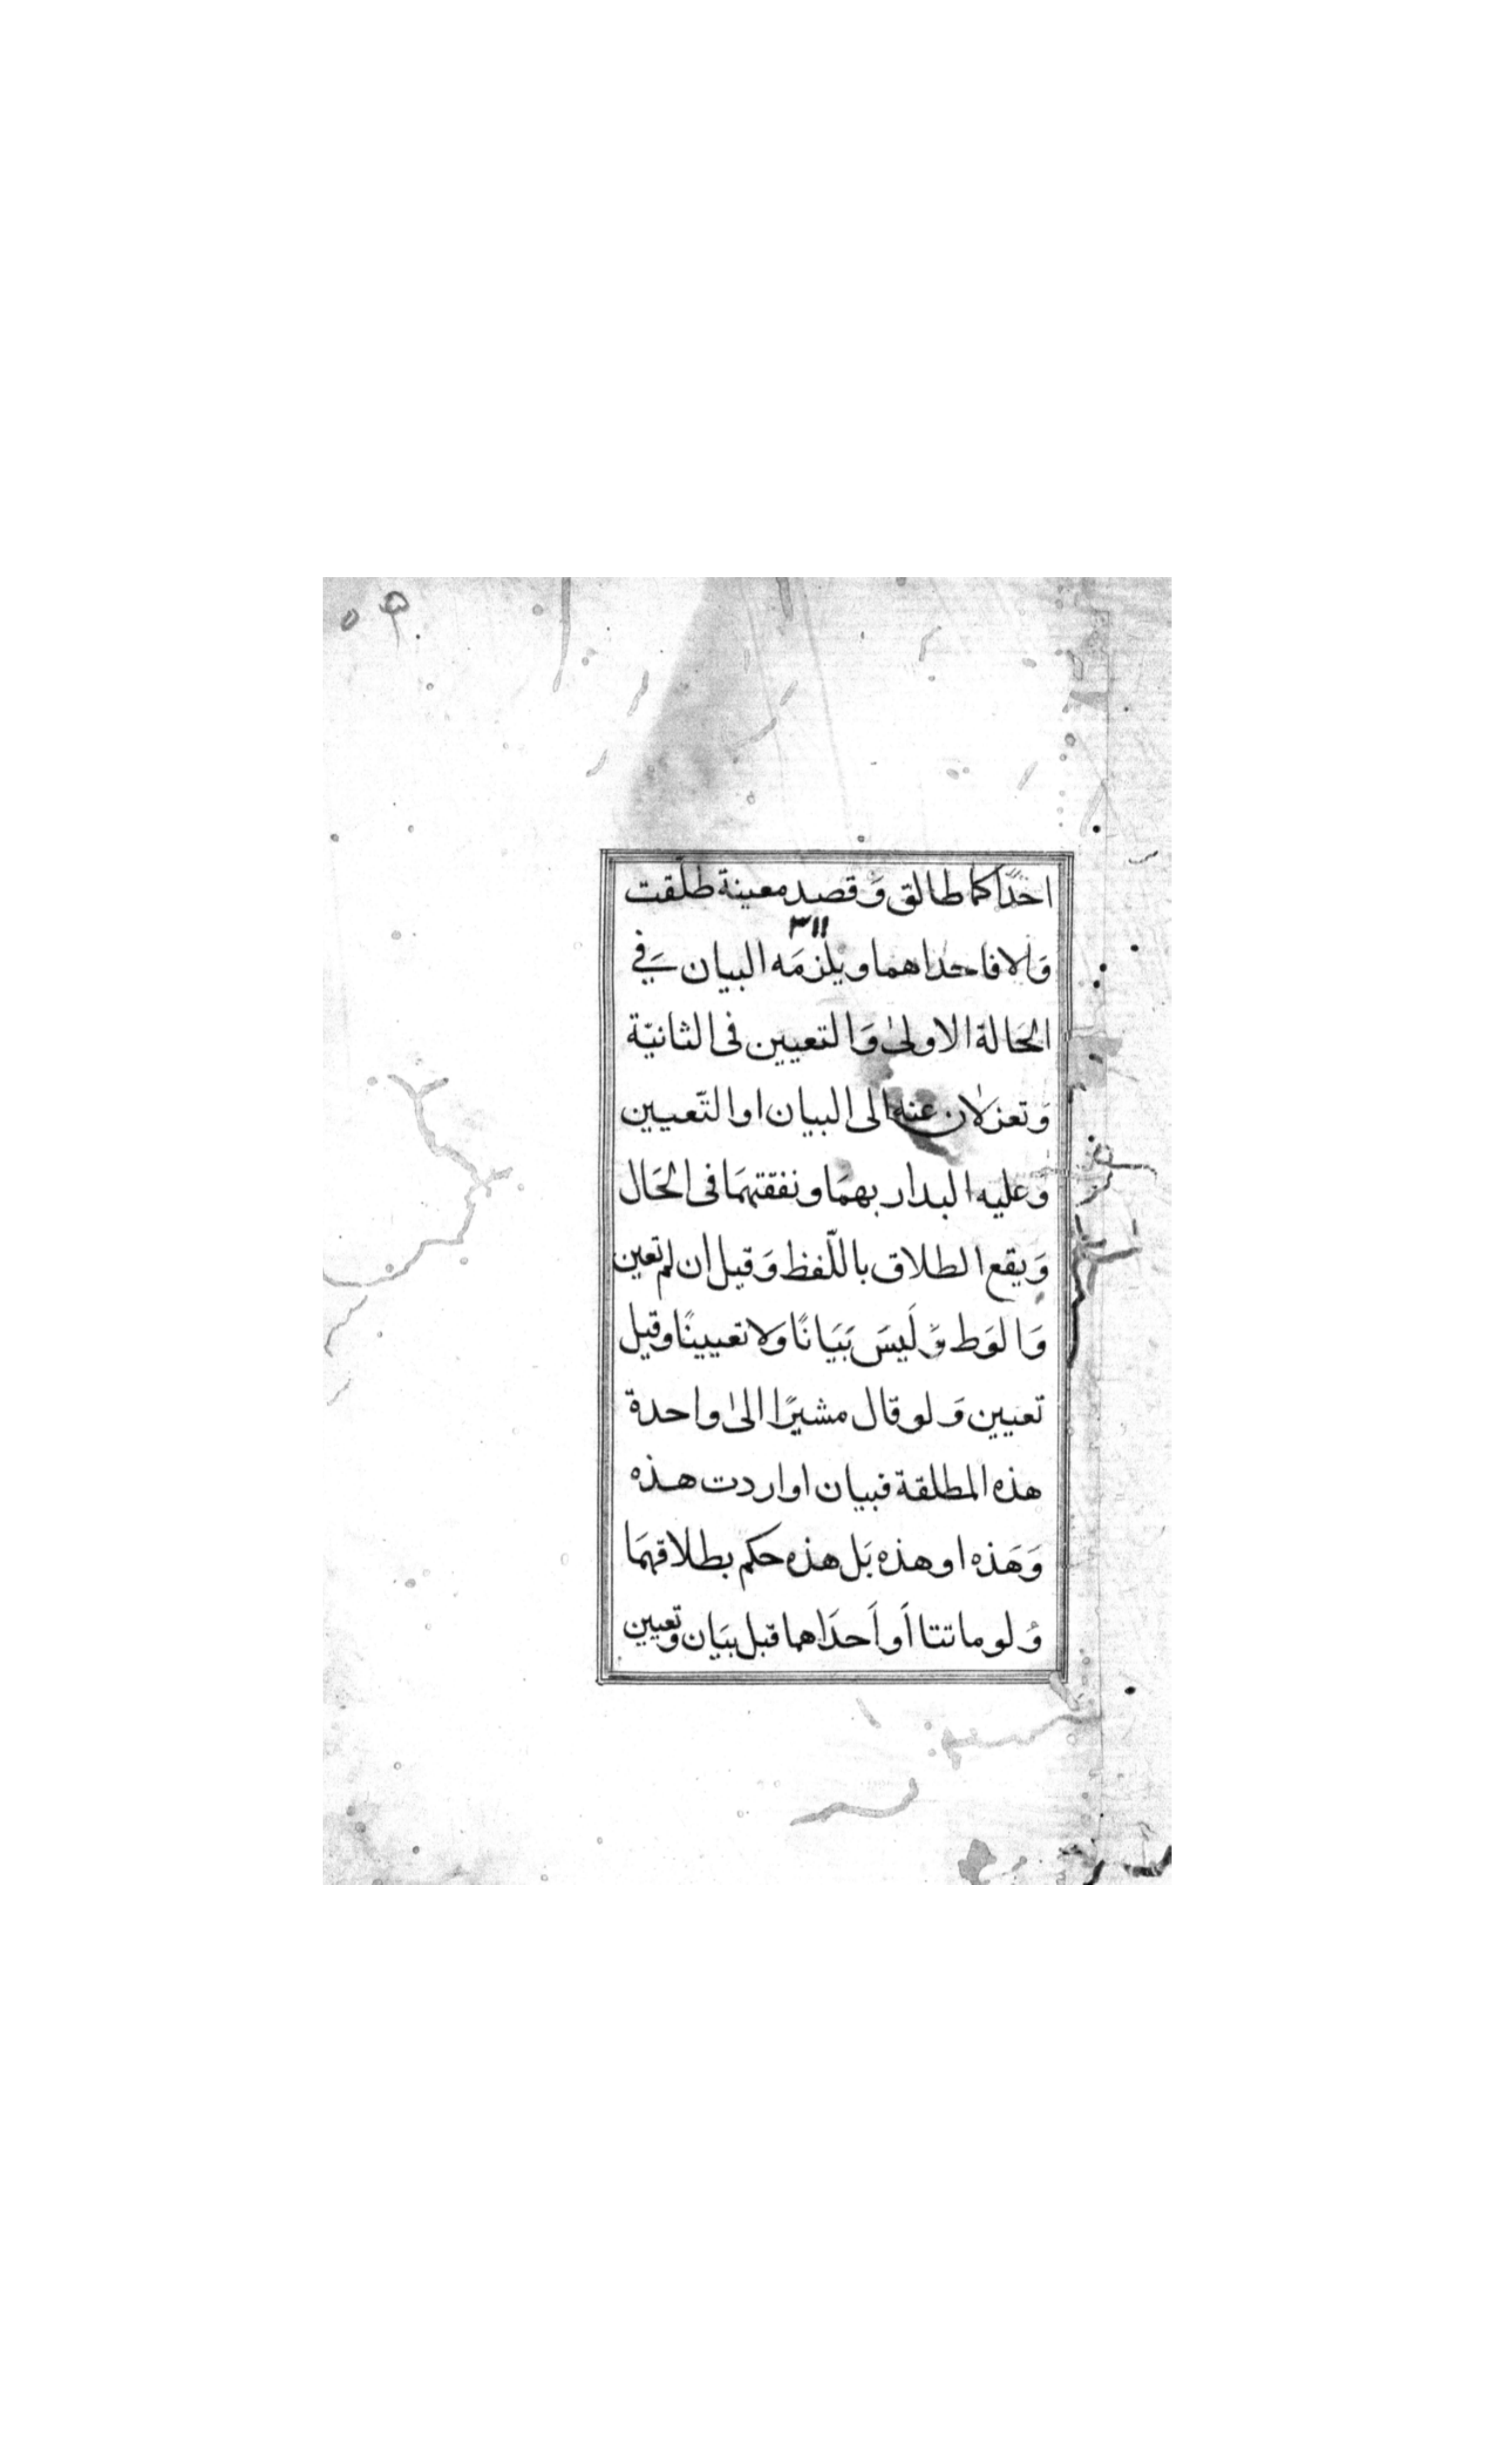 احداكما طالق وَقصد معينة طلّقت
٣١١
وَالا فاحداهما ويلزمَه البيان في
الحَالة الاولىٰ وَالتعيين فى الثانيّة
وَتعزلان عنه الى البيان او التّعيين
وَعليه البدار بهمَا ونفقتهمَا فى الحَال
وَيقع الطلاق باللّفظ وَقيل ان لم تعين
وَالوَطؤ لَيسَ بَيَانًا وَلا تعيينًا وقيل
تعيين وَلو قال مشيرًا الىٰ واحدة
هذه المطلقة فبيان او اردت هذه
وَهَذه او هذه بَل هذه حكم بطلاقهمَا
وَلو ماتتا أَو أَحدَاهما قبل بيَان وتعيين